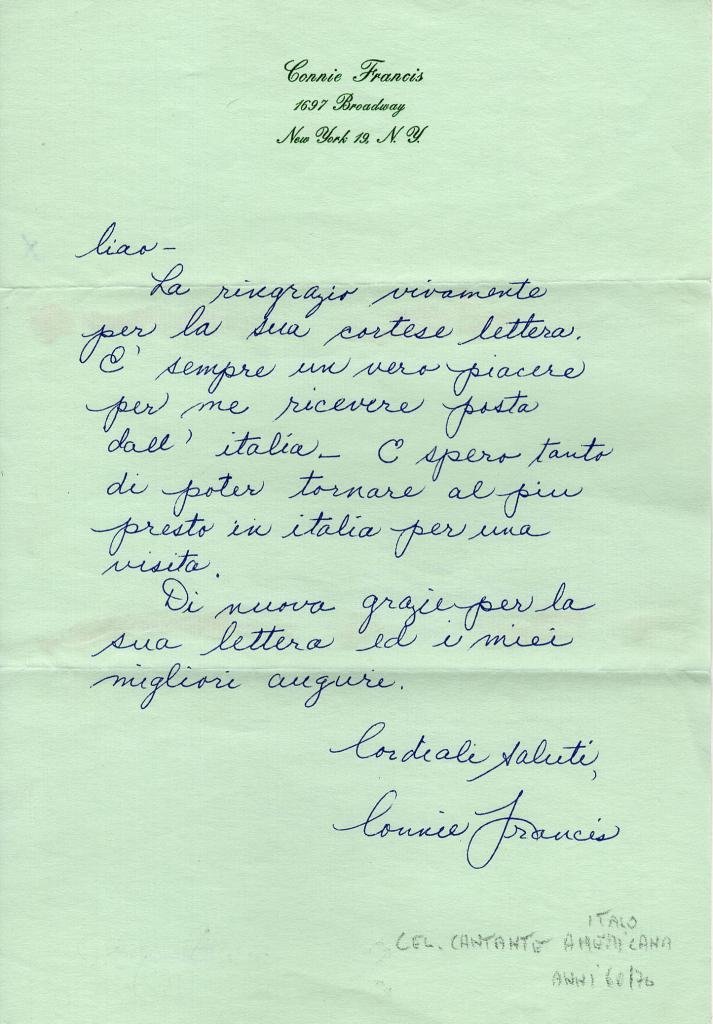 Connie Francis
1697 Broadway
New York 19, N. Y.
Ciao -
La ringrazio vivamente
per la sua cortese lettera.
E' sempre un vero piacere
per me ricevere posta
dall' italia - E spero tanto
di poter tornare al piu
presto in italia per una
visita.
Di nuova grazie per la
sua lettera ed i miei
migliori augure.
Cordeale saluti,
Connie Francis
ITALO
CEL. CANTANTE AMERICANA
ANNI 60/70